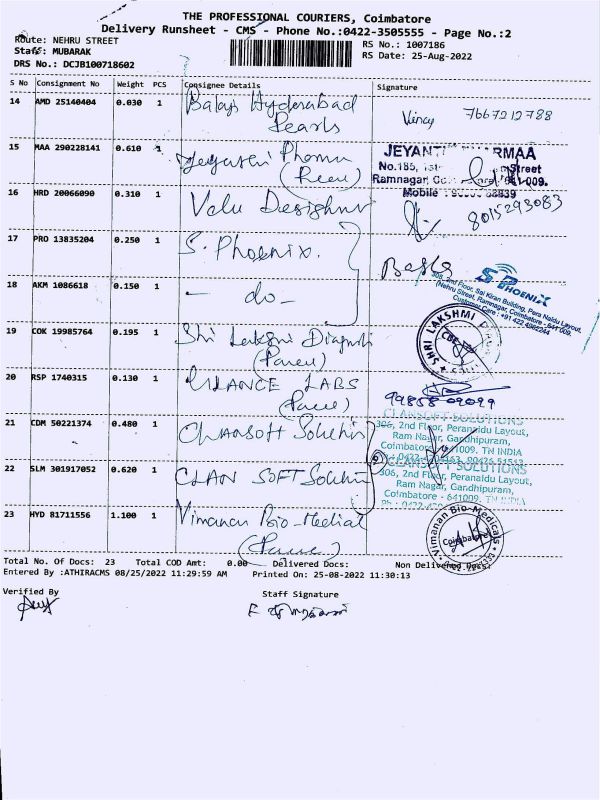 THE PROFESSIONAL COURIERS, Coimbatore
Delivery Runsheet - CMS - Phone No.:0422-3505555 - Page No.:2
Route: NEHRU STREET
Staff: MUBARAK
DRS No.: DCJB100718602
RS No.: 1007186
RS Date: 25-Aug-2022
S No Consignment No Weight PCS Consignee Details Signature
14 AMD 25140404 0.030 1 Balaji Hyderabad Pearls Vinay 7667212788
15 MAA 290228141 0.610 1 Jeyasri Pharma
JEYANTI RMAA
No.185, Street
Ramnagar, 641-009.
Mobile :
16 HRD 20066090 0.310 1 Velu Designer 8015293083
17 PRO 13835204 0.250 1 S. Phoenix.
18 AKM 1086618 0.150 1 - do -
S PHOENIX
308, 2nd Floor, Sai Kiran Building, Pera Naidu Layout,
(Nehru Street, Ramnagar, Coimbatore - 641 009.
Customer Care : +91 422 4982264
19 COK 19985764 0.195 1 Shri Lakshmi
SHRI LAKSHMI
CBE
20 RSP 1740315 0.130 1 LABS
99858 09099
21 CDM 50221374 0.480 1 Clansoft Solution
CLANSOFT SOLUTIONS
306, 2nd Floor, Peranaidu Layout,
Ram Nagar, Gandhipuram,
Coimbatore 641009. TN INDIA
22 SLM 301917052 0.620 1 CLAN SOFT Solution
CLANSOFT SOLUTIONS
306, 2nd Floor, Peranaidu Layout,
Ram Nagar, Gandhipuram,
Coimbatore - 641009. TN INDIA
23 HYD 81711556 1.100 1 Vimanan Bio-Medical
Vimanan Bio-Medicals
Coimbatore
Total No. Of Docs: 23 Total COD Amt: 0.00 Delivered Docs: Non Delivered Docs:
Entered By :ATHIRACMS 08/25/2022 11:29:59 AM Printed On: 25-08-2022 11:30:13
Verified By Staff Signature